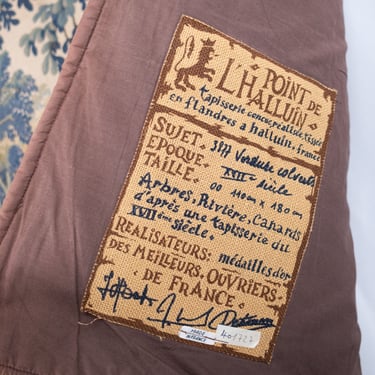 POINT DE
L'HALLUIN
tapisserie conçue, réalisée, tissée
en flandres à halluin, france
SUJET. 3817 Verdure colvert
EPOQUE. XVIIe siècle
TAILLE. 00 110cm x 180cm
Arbres, Rivière, Canards
d'après une tapisserie du
XVIIème siècle.
REALISATEURS: médailles d'or
DES MEILLEURS OUVRIERS
DE FRANCE
401722